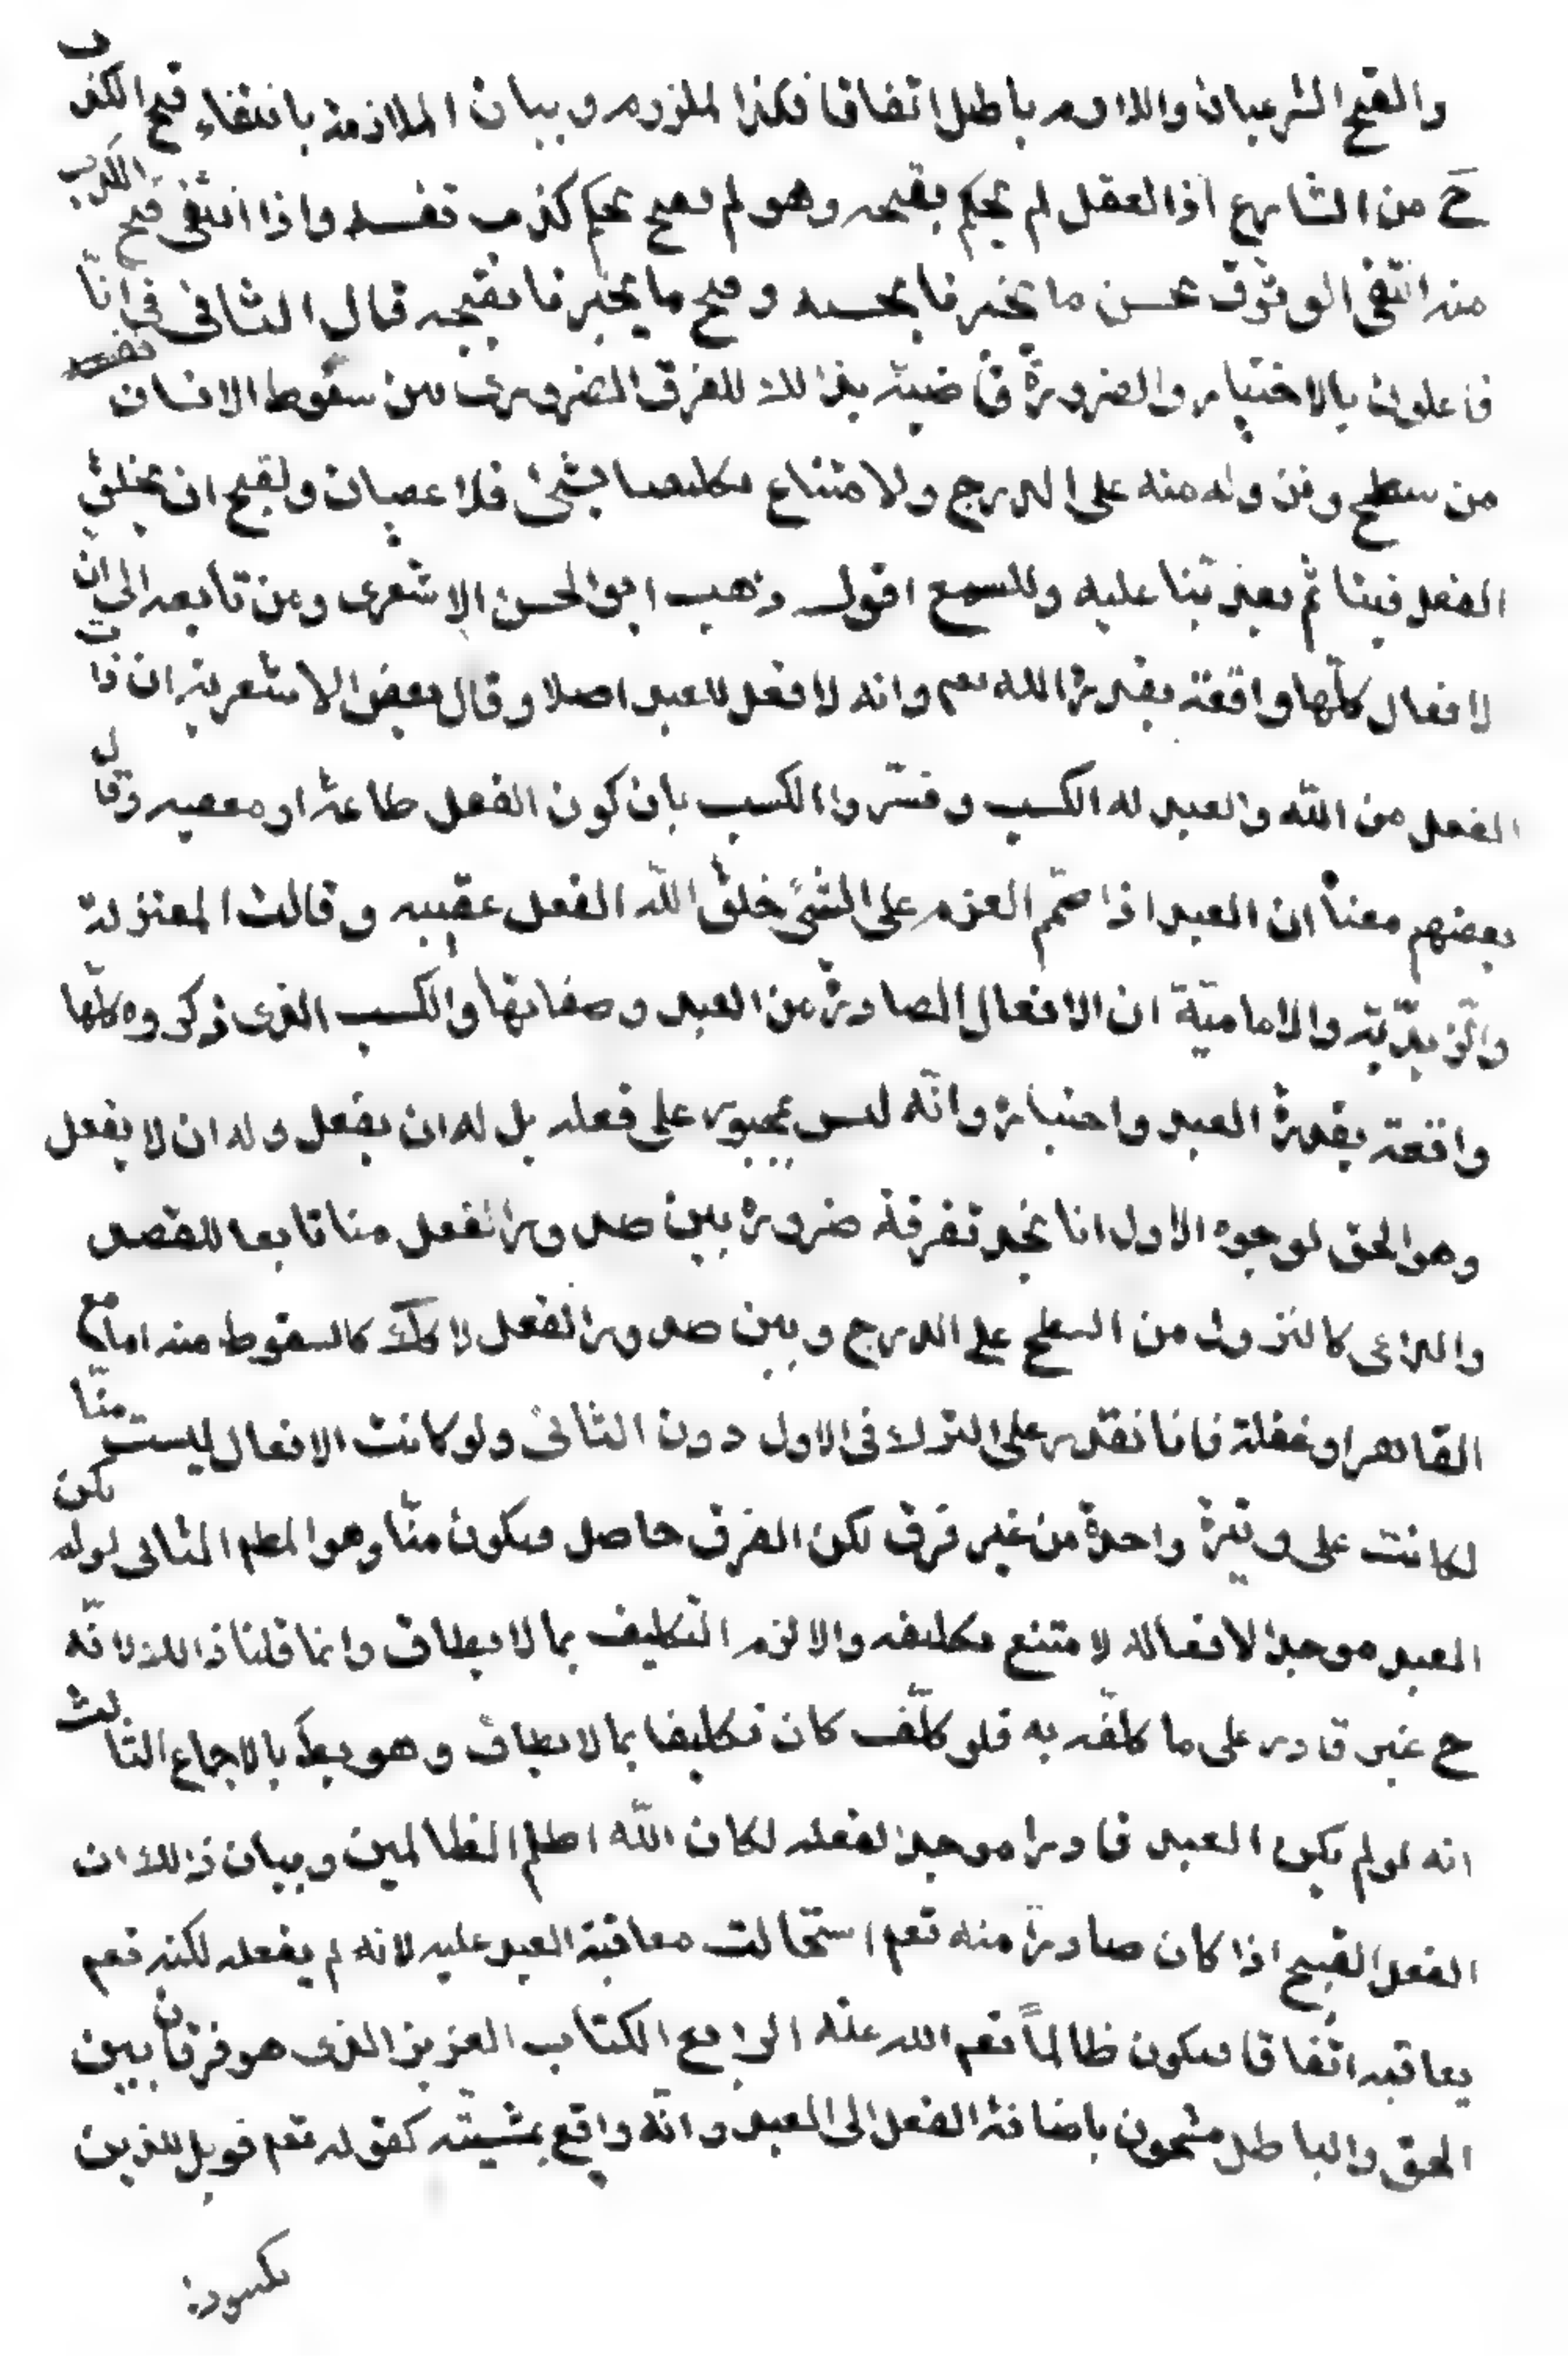 والقبح الشرعيان واللازم باطل اتفاقا فكذا الملزوم و بيان الملازمة بانتفاء قبح الكذب
ح من الشارع اذ العقل لم يحكم بقبحه وهو لم يقبح بحكم كذب نفسه واذا انتفى قبح الكذب
منه انتفى الوثوق بحسن ما يخبرنا بحسنه و قبح ما يخبرنا بقبحه قال الثانى فى انّا
فاعلون بالاختيار والضرورة قاضية بذالك للفرق الضرورى بين سقوط الانسان
من سطح ونزوله منه على الدرج ولامتناع تكليفنا بشئ فلا عصيان ولقبح ان يخلق
الفعل فينا ثم يعذبنا عليه وللسمع اقول ذهب ابو الحسن الاشعرى ومن تابعه الى ان
لافعال كلّها واقعة بقدرة الله تعم وانه لا فعل للعبد اصلا وقال بعض الاشعرية ان ذات
الفعل من اللّه والعبد له الكسب وفسّروا الكسب بان كون الفعل طاعة او معصيه وقال
بعضهم معناه ان العبد اذا صمّم العزم على الشئ خلق اللّه الفعل عقيبه وقالت المعتزلة
والزيديّة والاماميّة ان الافعال الصادرة من العبد وصفاتها والكسب الذى ذكروه كلّها
واقعة بقدرة العبد واختياره وانّه ليس بمجبور على فعله بل له ان يفعل وله ان لا يفعل
وهو الحق لوجوه الاول انا نجد تفرقة ضرورة بين صدور الفعل منا تابعا للقصد
والداعى كالنزول من السطح على الدرج وبين صدور الفعل لا كك كالسقوط منه اما مع
القاهر او غفلة فانا نقدر على الترك فى الاول دون الثانى ولو كانت الافعال ليست منّا
لكانت على وتيرة واحدة من غير فرق لكن الفرق حاصل فيكون منّا وهو المطم الثانى لو لم يكن
العبد موجدا لافعاله لامتنع تكليفه والا لزم التكليف بما لا يطاق وانما قلنا ذالك لانّه
ح غير قادر على ما كلّفه به فلو كلّف كان تكليفا بما لا يطاق وهو بط بالاجماع الثالث
انه لو لم يكن العبد قادرا موجدا لفعله لكان اللّه اظلم الظالمين وبيان ذالك ان
الفعل القبيح اذا كان صادرا منه تعم استحالت معاقبة العبد عليه لانه لم يفعله لكنه تعم
يعاقبه اتفاقا فيكون ظالماً تعم الله عنه الرابع الكتاب العزيز الذى هو فرقان بين
الحق والباطل مشحون باضافة الفعل الى العبد وانّه واقع بمشيته كقوله تعم فويل للذين